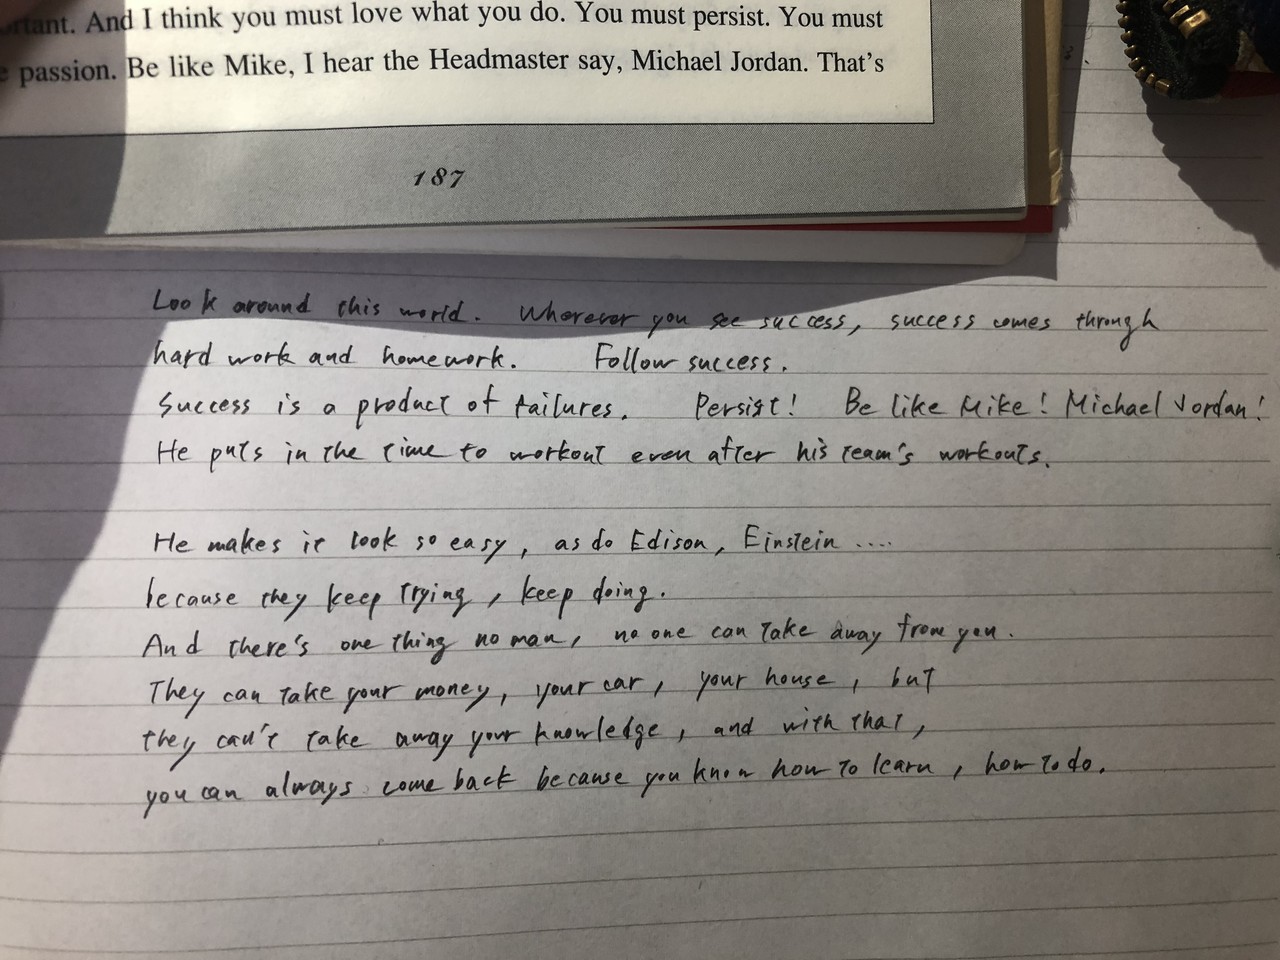 rtant. And I think you must love what you do. You must persist. You must
passion. Be like Mike, I hear the Headmaster say, Michael Jordan. That's
187
Look around this world. Wherever you see success, success comes through
hard work and homework. Follow success.
Success is a product of failures. Persist! Be like Mike! Michael Jordan!
He puts in the time to workout even after his team's workouts.
He makes it look so easy, as do Edison, Einstein ....
because they keep trying, keep doing.
And there's one thing no man, no one can take away from you.
They can take your money, your car, your house, but
they can't take away your knowledge, and with that,
you can always come back because you know how to learn, how to do.